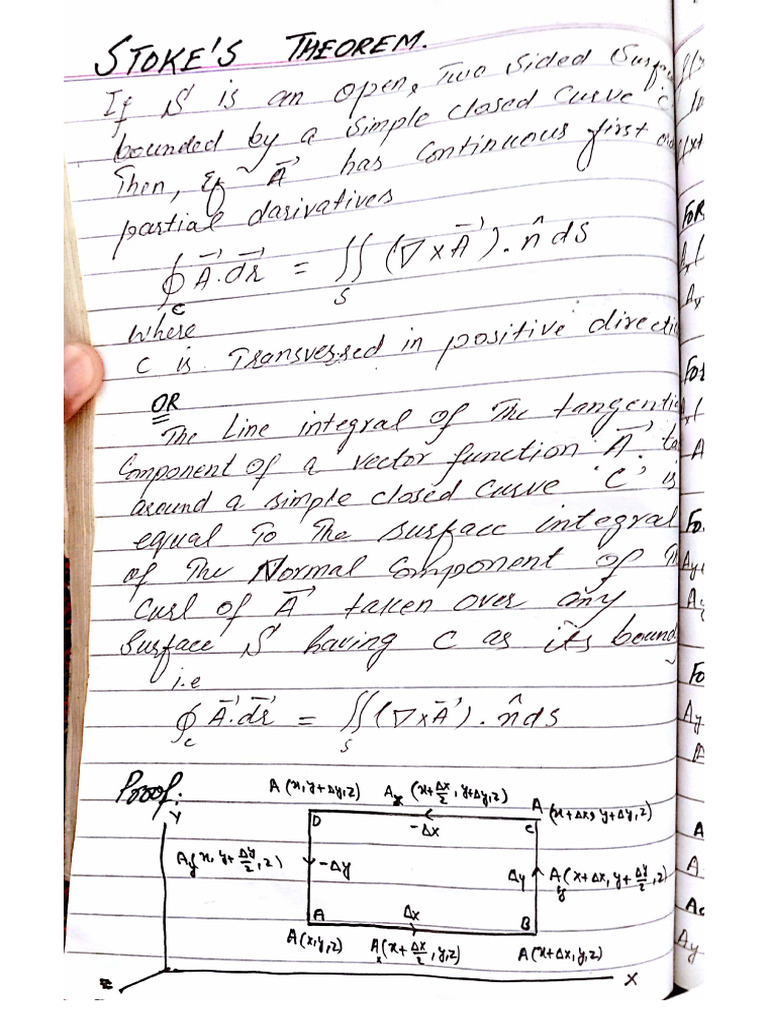 STOKE'S THEOREM.
If S is an open, Two sided Surfa
bounded by a simple closed curve C
Then, if A⃗ has continuous first
partial darivatives
∮c A⃗.dr⃗ = ∬s (∇×A⃗).n̂ ds
where
C is Transversed in positive directi
OR
The Line integral of The tangentia
Component of a vector function A⃗ ta
around a simple closed curve 'C' is
equal To The surface integral
of The Normal Component of Th
Curl of A⃗ taken over any
Surface S having C as its bound
i.e
∮c A⃗.dr⃗ = ∬s (∇×A⃗).n̂ ds
Proof:
A(x,y+Δy,z) Ax(x+Δx/2, y+Δy,z) A(x+Δx, y+Δy,z)
Y D -Δx C
Ay(x, y+Δy/2, z) -Δy Δy Ay(x+Δx, y+Δy/2, z)
A Δx B
A(x,y,z) Ax(x+Δx/2, y,z) A(x+Δx,y,z)
Z X